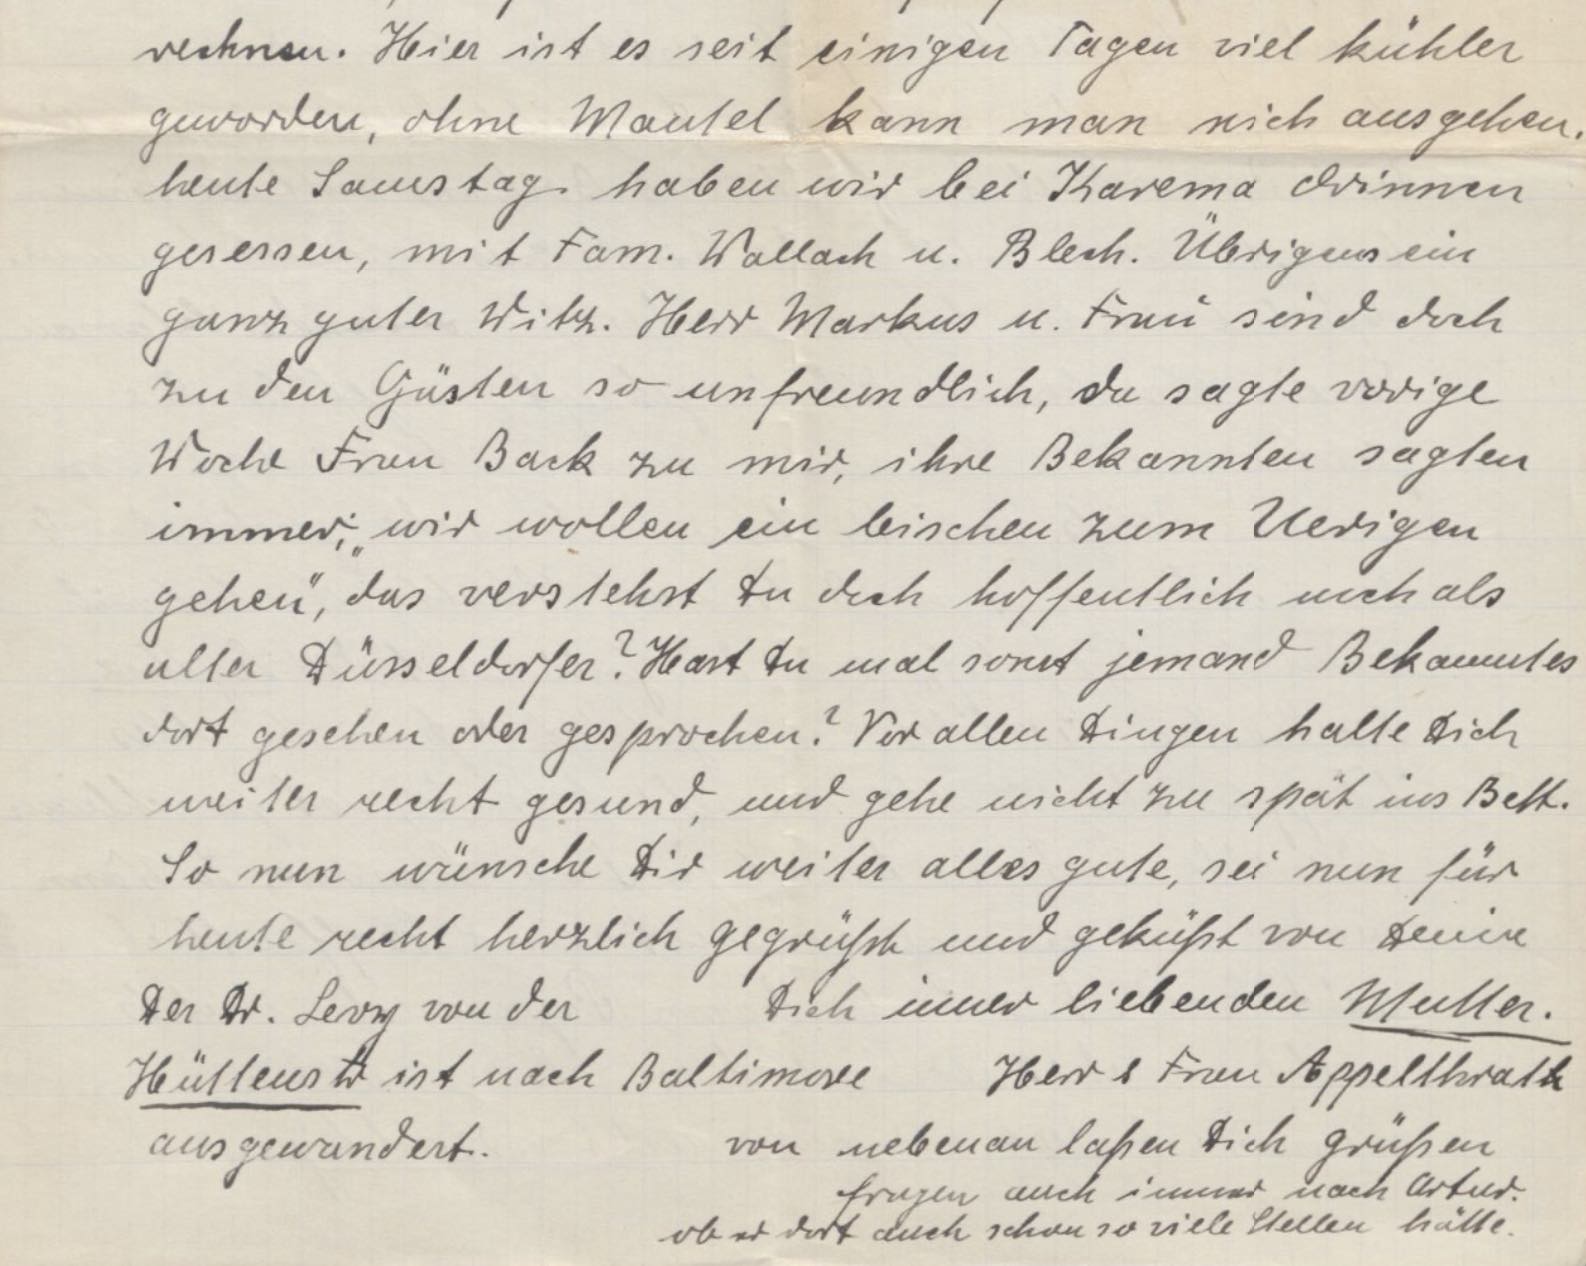 rechnen. Hier ist es seit einigen Tagen viel kühler
geworden, ohne Mantel kann man nich ausgehen.
heute Samstag haben wir bei Karema drinnen
gesessen, mit Fam. Wallach u. Blech. Übrigens ein
ganz guter Witz. Herr Markus u. Frau sind doch
zu den Gästen so unfreundlich, da sagte vorige
Woche Frau Back zu mir, ihre Bekannten sagten
immer; „wir wollen ein bischen zum Uerigen
gehen", das verstehst Du doch hoffentlich noch als
alter Düsseldorfer? Hast Du mal sonst jemand Bekanntes
dort gesehen oder gesprochen? Vor allen Dingen halte Dich
weiter recht gesund, und gehe nicht zu spät ins Bett.
So nun wünsche Dir weiter alles gute, sei nun für
heute recht herzlich gegrüßt und geküßt von Deine
Dich immer liebenden Mutter.
Der Dr. Levy von der
Hüttenstr ist nach Baltimore
ausgewandert.
Herr & Frau Appelthrath
von nebenan laßen Dich grüßen
fragen auch immer nach Artur.
ob er dort auch schon so viele Stellen hätte.